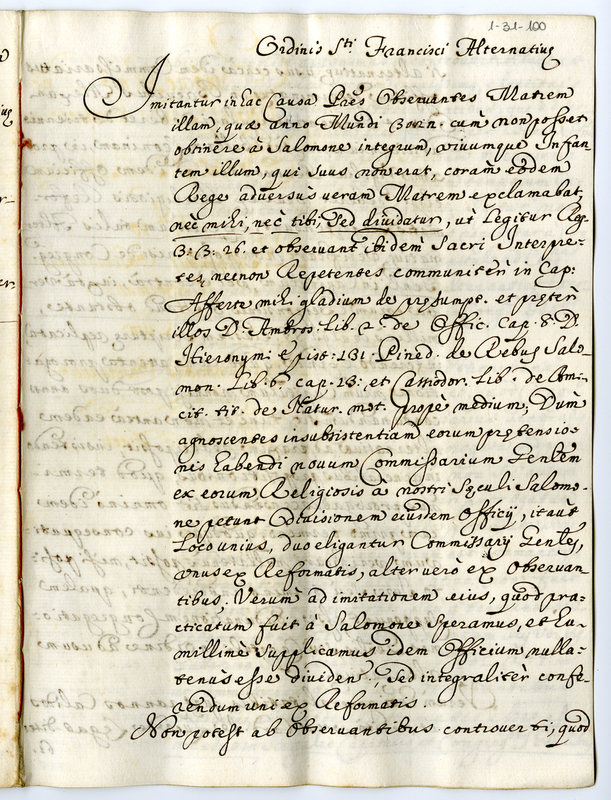 1-31-100
Ordinis S.ti Francisci Alternatiuȩ
Imitantur in hac Causa Pr̃es Obseruantes Matrem
illam, quæ anno Mundi cum̃ non posset
obtinere à Salomone integrum, viuumque Infan
tem illum, qui suus non erat, coram̃ eodem
Rege aduersus ueram Matrem exclamabat,
nec̃ mihi, nec̃ tibi, sed diuidatur, ut legitur Reg.
3. 3. 26. et obseruant ibidem Sacri Interpre-
tes, necnon Repetentes communitèr in Cap.
Afferte mihi gladium de pręsumpt. et prętèr
illos D. Ambros. lib. 2.º de Offic. Cap. 8. D.
Hieronym. Epist. 131. Pined. de Rebus Salo-
mon. lib. 6.º cap. 13. et Cassiodor. lib. de Ami-
cit. tit. de Natur. mot. propè medium; Dum̃
agnoscentes insubsistentiam eorum prętensio-
nis habendi nouum Commissarium Gen̄lem
ex eorum Religiosis à nostri Sęculi Salomo-
ne petunt diuisionem eiusdem Officij, ita ut
Loco unius, duo eligantur Commissarij Gen̄les,
vnus ex Reformatis, alter uerò ex Obseruan
tibus. Verum̃ ad imitationem eius, quod pra-
cticatum fuit à Salomone speramus, et hu-
millimè supplicamus idem Officium nulla-
tenus esse diuiden., sed integralitèr confe-
rendum uni ex Reformatis.
Non potest ab Obseruantibus controuerti, quod